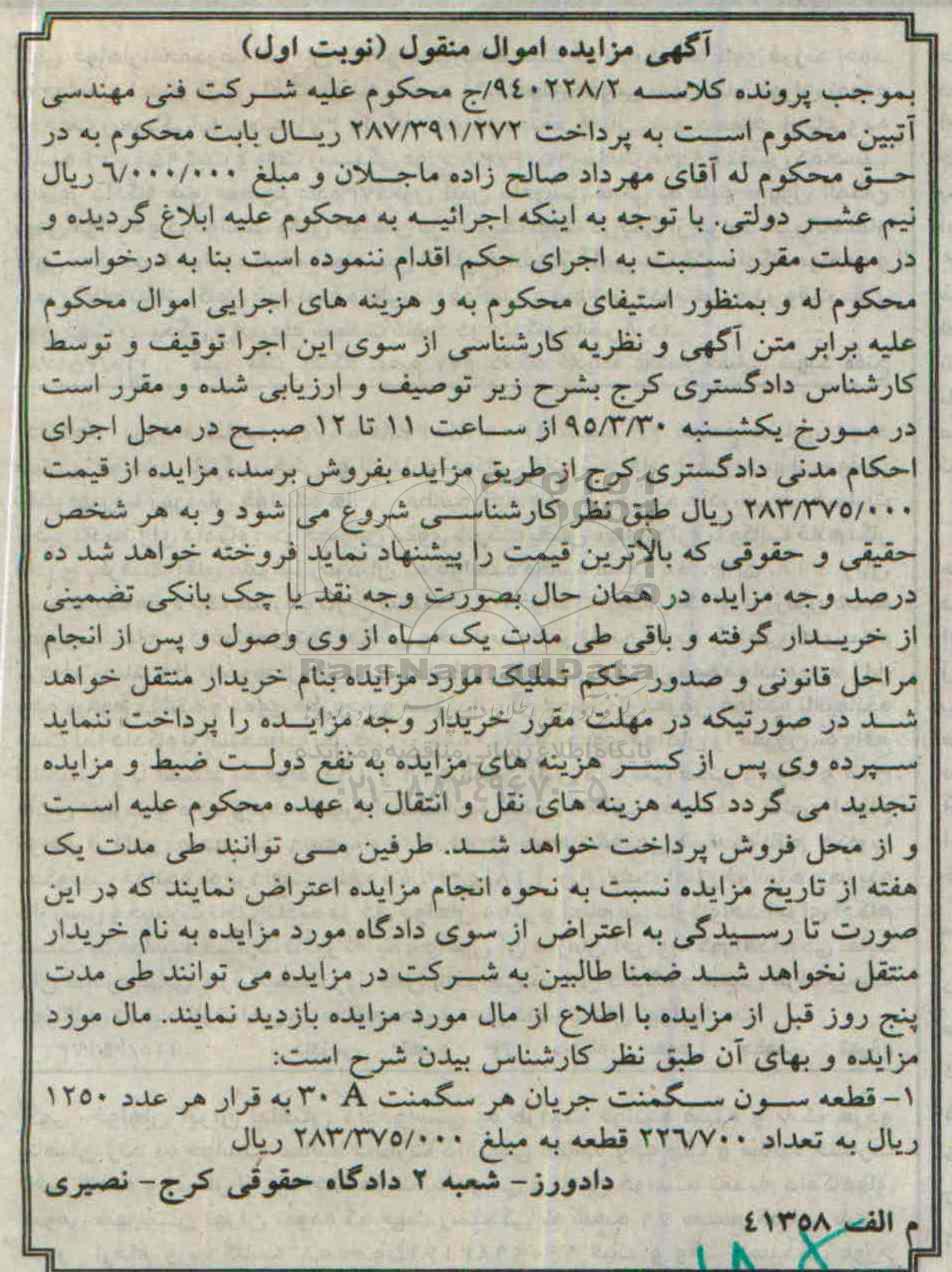 آگهی مزایده اموال منقول (نوبت اول)
بموجب پرونده کلاسه ۹٤۰۲۲۸/۲/ج محکوم علیه شرکت فنی مهندسی
آتبین محکوم است به پرداخت ۲۸۷/۳۹۱/۲۷۲ ریال بابت محکوم به در
حق محکوم له آقای مهرداد صالح زاده ماجلان و مبلغ ٦/۰۰۰/۰۰۰ ریال
نیم عشر دولتی. با توجه به اینکه اجرائیه به محکوم علیه ابلاغ گردیده و
در مهلت مقرر نسبت به اجرای حکم اقدام ننموده است بنا به درخواست
محکوم له و بمنظور استیفای محکوم به و هزینه های اجرایی اموال محکوم
علیه برابر متن آگهی و نظریه کارشناسی از سوی این اجرا توقیف و توسط
کارشناس دادگستری کرج بشرح زیر توصیف و ارزیابی شده و مقرر است
در مورخ یکشنبه ۹٥/۳/۳۰ از ساعت ۱۱ تا ۱۲ صبح در محل اجرای
احکام مدنی دادگستری کرج از طریق مزایده بفروش برسد، مزایده از قیمت
۲۸۳/۳۷٥/۰۰۰ ریال طبق نظر کارشناسی شروع می شود و به هر شخص
حقیقی و حقوقی که بالاترین قیمت را پیشنهاد نماید فروخته خواهد شد ده
درصد وجه مزایده در همان حال بصورت وجه نقد یا چک بانکی تضمینی
از خریدار گرفته و باقی طی مدت یک ماه از وی وصول و پس از انجام
مراحل قانونی و صدور حکم تملیک مورد مزایده بنام خریدار منتقل خواهد
شد در صورتیکه در مهلت مقرر خریدار وجه مزایده را پرداخت ننماید
سپرده وی پس از کسر هزینه های مزایده به نفع دولت ضبط و مزایده
تجدید می گردد کلیه هزینه های نقل و انتقال به عهده محکوم علیه است
و از محل فروش پرداخت خواهد شد. طرفین می توانند طی مدت یک
هفته از تاریخ مزایده نسبت به نحوه انجام مزایده اعتراض نمایند که در این
صورت تا رسیدگی به اعتراض از سوی دادگاه مورد مزایده به نام خریدار
منتقل نخواهد شد ضمنا طالبین به شرکت در مزایده می توانند طی مدت
پنج روز قبل از مزایده با اطلاع از مال مورد مزایده بازدید نمایند. مال مورد
مزایده و بهای آن طبق نظر کارشناس بیدن شرح است:
۱- قطعه سون سگمنت جریان هر سگمنت ۳۰ A به قرار هر عدد ۱۲٥۰
ریال به تعداد ۲۲٦/۷۰۰ قطعه به مبلغ ۲۸۳/۳۷٥/۰۰۰ ریال
دادورز- شعبه ۲ دادگاه حقوقی کرج- نصیری
م الف ٤۱۳٥۸
ParsNamadData
۰۲۱-۸۸۳٤۹٦۷۰-٥